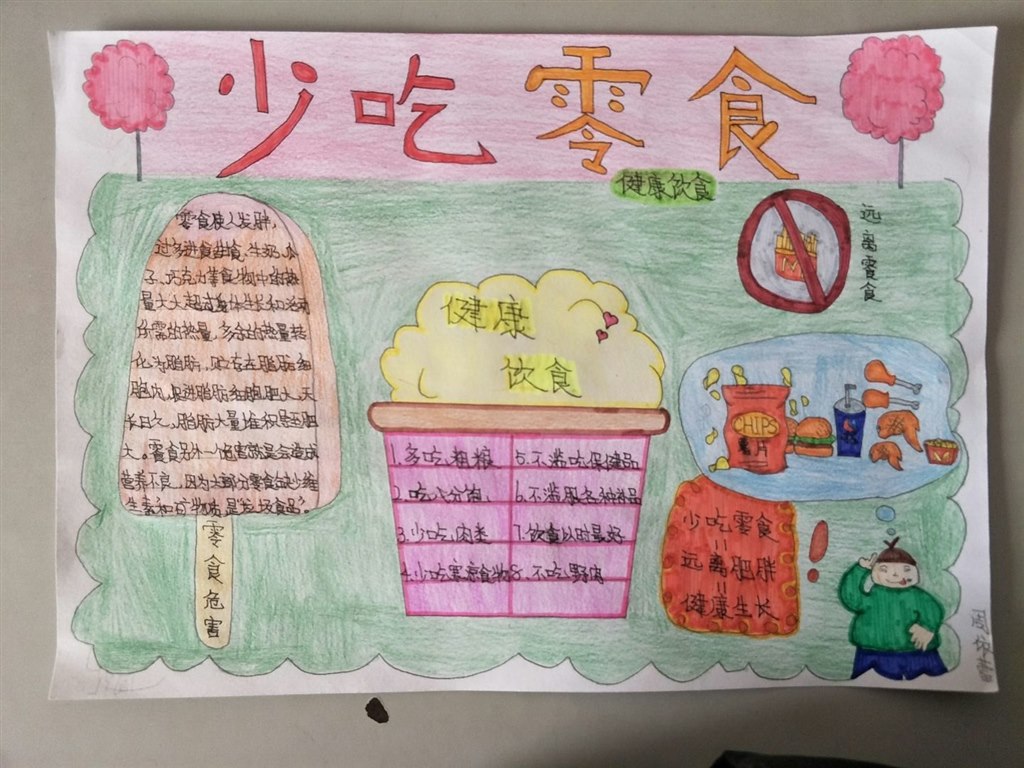 少吃零食
健康饮食
远离零食
零食使人发胖,
过多进食甜食、牛奶、瓜
子、巧克力等食物中的热
量大大超过身体生长和活动
所需的热量,多余的热量转
化为脂肪,贮存在脂肪细
胞内,促进脂肪细胞肥大,天
长日久,脂肪大量堆积是至肥
大。零食另外一个危害就是会造成
营养不良,因为大部分零食缺少维
生素和矿物质是垃圾食品。
零食危害
健康
饮食
1.多吃粗粮
2.吃八分饱
3.少吃肉类
4.少吃寒凉食物
5.不滥吃保健品
6.不滥服各种补品
7.饮食以时最好
8.不吃野肉
CHIPS
薯片
少吃零食
=
远离肥胖
=
健康生长